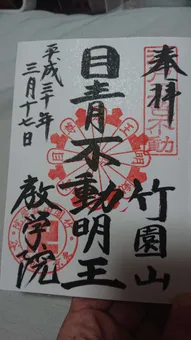 奉拝
竹園山
目青不動明王
教学院
平成三十年
三月十七日